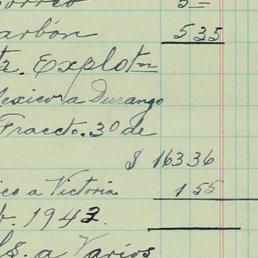 orreo 5=
arbón 535
ta. Explotn
Mexico a Durango
Fraccto. 30 de
$ 163 36
ico a Victoria 1 55
b. 1942.
ls. a Varios